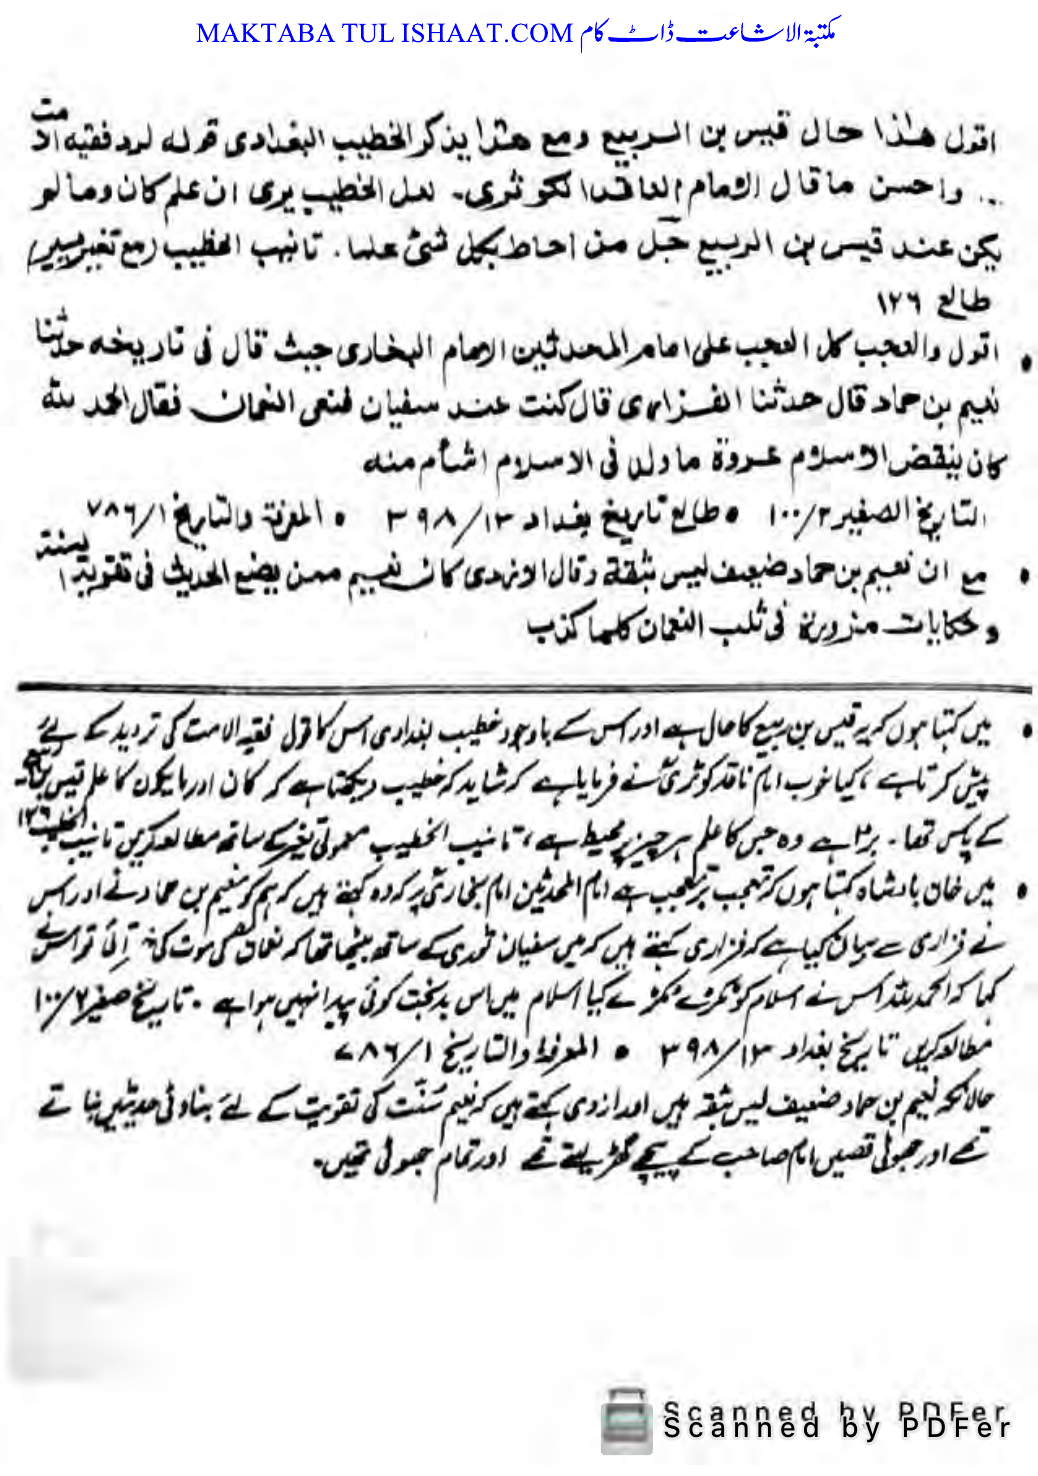 MAKTABA TUL ISHAAT.COM مکتبۃ الاشاعت ڈاٹ کام
اقول هٰذا حال قيس بن الربيع ومع هٰذا يذكر الخطيب البغدادى قوله لرد فقيه الامت
... واحسن ما قال الامام الناقد الكوثرى۔ لعل الخطيب يرى ان علم كان وما لو
يكن عند قيس بن الربيع جَل من احاط بكل شئ علما۔ تانيب الخطيب (مع تغير يسير)
طالع ١٢٦
• اقول والعجب كل العجب على امام المحدثين الامام البخارى حيث قال فى تاريخه حدثنا
نعيم بن حماد قال حدثنا الفزارى قال كنت عند سفيان فنعى النعمان فقال الحمد لله
كان ينقض الاسلام عروة ما ولد فى الاسلام اشأم منه
التاريخ الصغير ١٠٠/٢ • طالع تاريخ بغداد ٣٩٨/١٣ • المعرفة والتاريخ ٧٨٦/١
• مع ان نعيم بن حماد ضعيف ليس بثقة وقال الازدى كان نعيم ممن يضع الحديث فى تقوية السنة
و حكايات مزورة فى ثلب النعمان كلها كذب
• میں کہتا ہوں کہ یہ قیس بن ربیع کا حال ہے اور اس کے باوجود خطیب بغدادی اس کا قول فقیہ الامت کی تردید کے لئے
پیش کرتا ہے، کیا خوب امام ناقد کوثریؒ نے فرمایا ہے کہ شاید کہ خطیب دیکھتا ہے کہ کان اور مایکون کا علم قیس بن ربیع
کے پاس تھا۔ بڑا ہے وہ جس کا علم ہر چیز پر محیط ہے، تانیب الخطیب معمولی تغیر کے ساتھ مطالعہ کریں تانیب الخطیب ١٢٦
• میں خان بادشاہ کہتا ہوں کہ تعجب پر تعجب ہے امام المحدثین امام بخاریؒ پر کہ وہ کہتے ہیں کہ ہم کو نعیم بن حماد نے اور اس
نے فزاری سے بیان کیا ہے کہ فزاری کہتے ہیں کہ میں سفیان ثوری کے ساتھ بیٹھا تھا کہ نعمان کی موت کی آئی تو اس نے
کہا کہ الحمد للہ اس نے اسلام کو ٹکڑے ٹکڑے کیا اسلام میں اس بدبخت کوئی پیدا نہیں ہوا ہے۔ تاریخ صغیر ١٠٠/٢
مطالعہ کریں تاریخ بغداد ٣٩٨/١٣ • المعرفۃ والتاریخ ٧٨٦/١
حالانکہ نعیم بن حماد ضعیف لیس بثقہ ہیں اور ازدی کہتے ہیں کہ نعیم سُنّت کی تقویت کے لئے بناوٹی حدیثیں بناتے
تھے اور جھوٹی قصیں امام صاحب کے پیچھے گھڑ لیتے تھے اور تمام جھوٹی تھیں۔
Scanned by PDFer
Scanned by PDFer